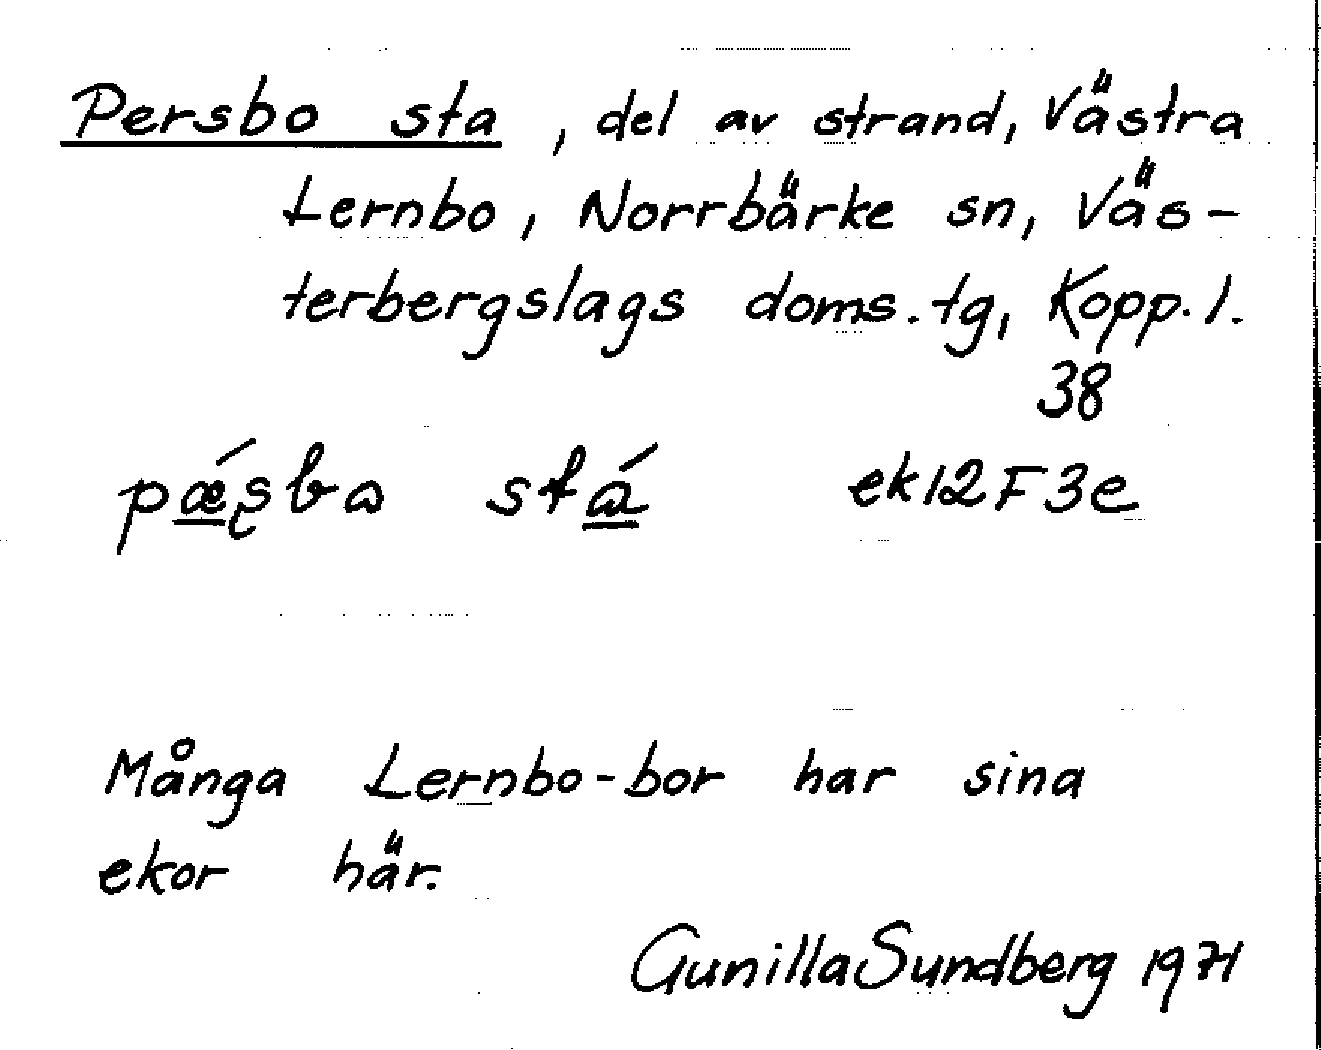 Persbo sta, del av strand, Västra
Lernbo, Norrbärke sn, Väs-
terbergslags doms. tg, Kopp. l.
38
pǽʂba stá ek12F3e
Många Lernbo-bor har sina
ekor här.
Gunilla Sundberg 1971